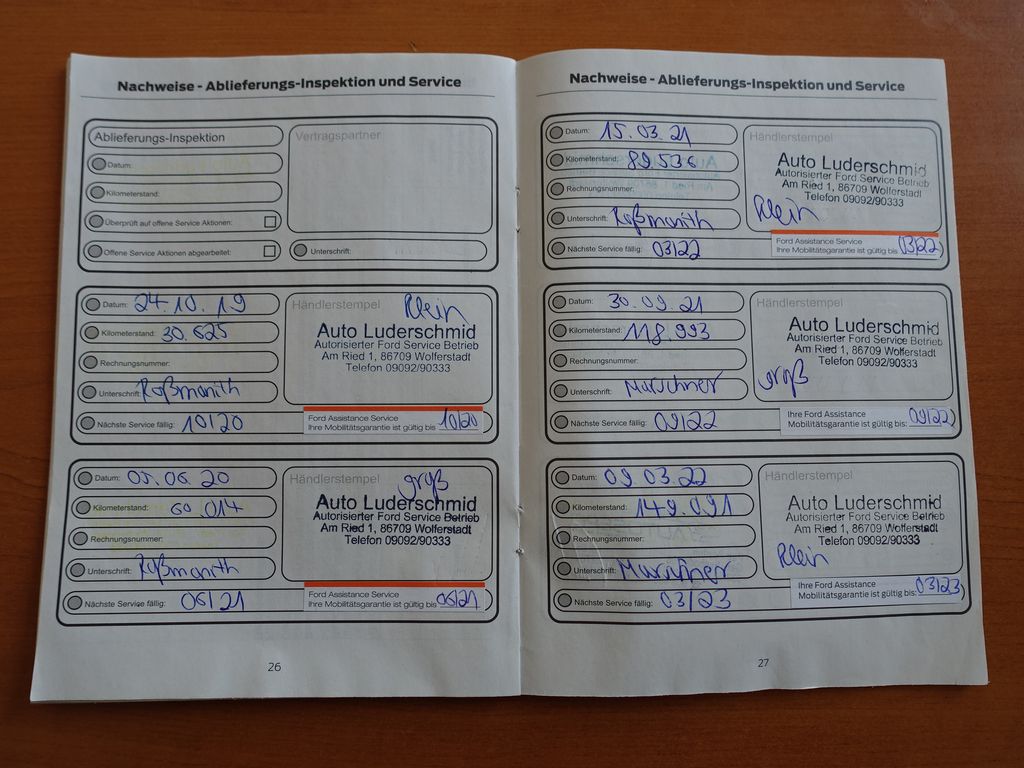 Nachweise - Ablieferungs-Inspektion und Service
Ablieferungs-Inspektion
Vertragspartner
Datum:
Kilometerstand:
Überprüft auf offene Service Aktionen:
Offene Service Aktionen abgearbeitet:
Unterschrift:
Datum: 24.10.19
Kilometerstand: 30.625
Rechnungsnummer:
Unterschrift: Roßmanith
Nächste Service fällig: 10/20
Händlerstempel
Klein
Auto Luderschmid
Autorisierter Ford Service Betrieb
Am Ried 1, 86709 Wolferstadt
Telefon 09092/90333
Ford Assistance Service
Ihre Mobilitätsgarantie ist gültig bis 10/20
Datum: 05.06.20
Kilometerstand: 60.014
Rechnungsnummer:
Unterschrift: Roßmanith
Nächste Service fällig: 06/21
Händlerstempel
groß
Auto Luderschmid
Autorisierter Ford Service Betrieb
Am Ried 1, 86709 Wolferstadt
Telefon 09092/90333
Ford Assistance Service
Ihre Mobilitätsgarantie ist gültig bis 06/21
26
Nachweise - Ablieferungs-Inspektion und Service
Datum: 15.03.21
Kilometerstand: 89.536
Rechnungsnummer:
Unterschrift: Roßmanith
Nächste Service fällig: 03/22
Händlerstempel
Auto Luderschmid
Autorisierter Ford Service Betrieb
Am Ried 1, 86709 Wolferstadt
Telefon 09092/90333
Klein
Ford Assistance Service
Ihre Mobilitätsgarantie ist gültig bis 03/22
Datum: 30.09.21
Kilometerstand: 118.993
Rechnungsnummer:
Unterschrift:
Nächste Service fällig: 09/22
Händlerstempel
Auto Luderschmid
Autorisierter Ford Service Betrieb
Am Ried 1, 86709 Wolferstadt
Telefon 09092/90333
groß
Ihre Ford Assistance
Mobilitätsgarantie ist gültig bis: 09/22
Datum: 09.03.22
Kilometerstand: 149.091
Rechnungsnummer:
Unterschrift:
Nächste Service fällig: 03/23
Händlerstempel
Auto Luderschmid
Autorisierter Ford Service Betrieb
Am Ried 1, 86709 Wolferstadt
Telefon 09092/90333
Klein
Ihre Ford Assistance
Mobilitätsgarantie ist gültig bis: 03/23
27